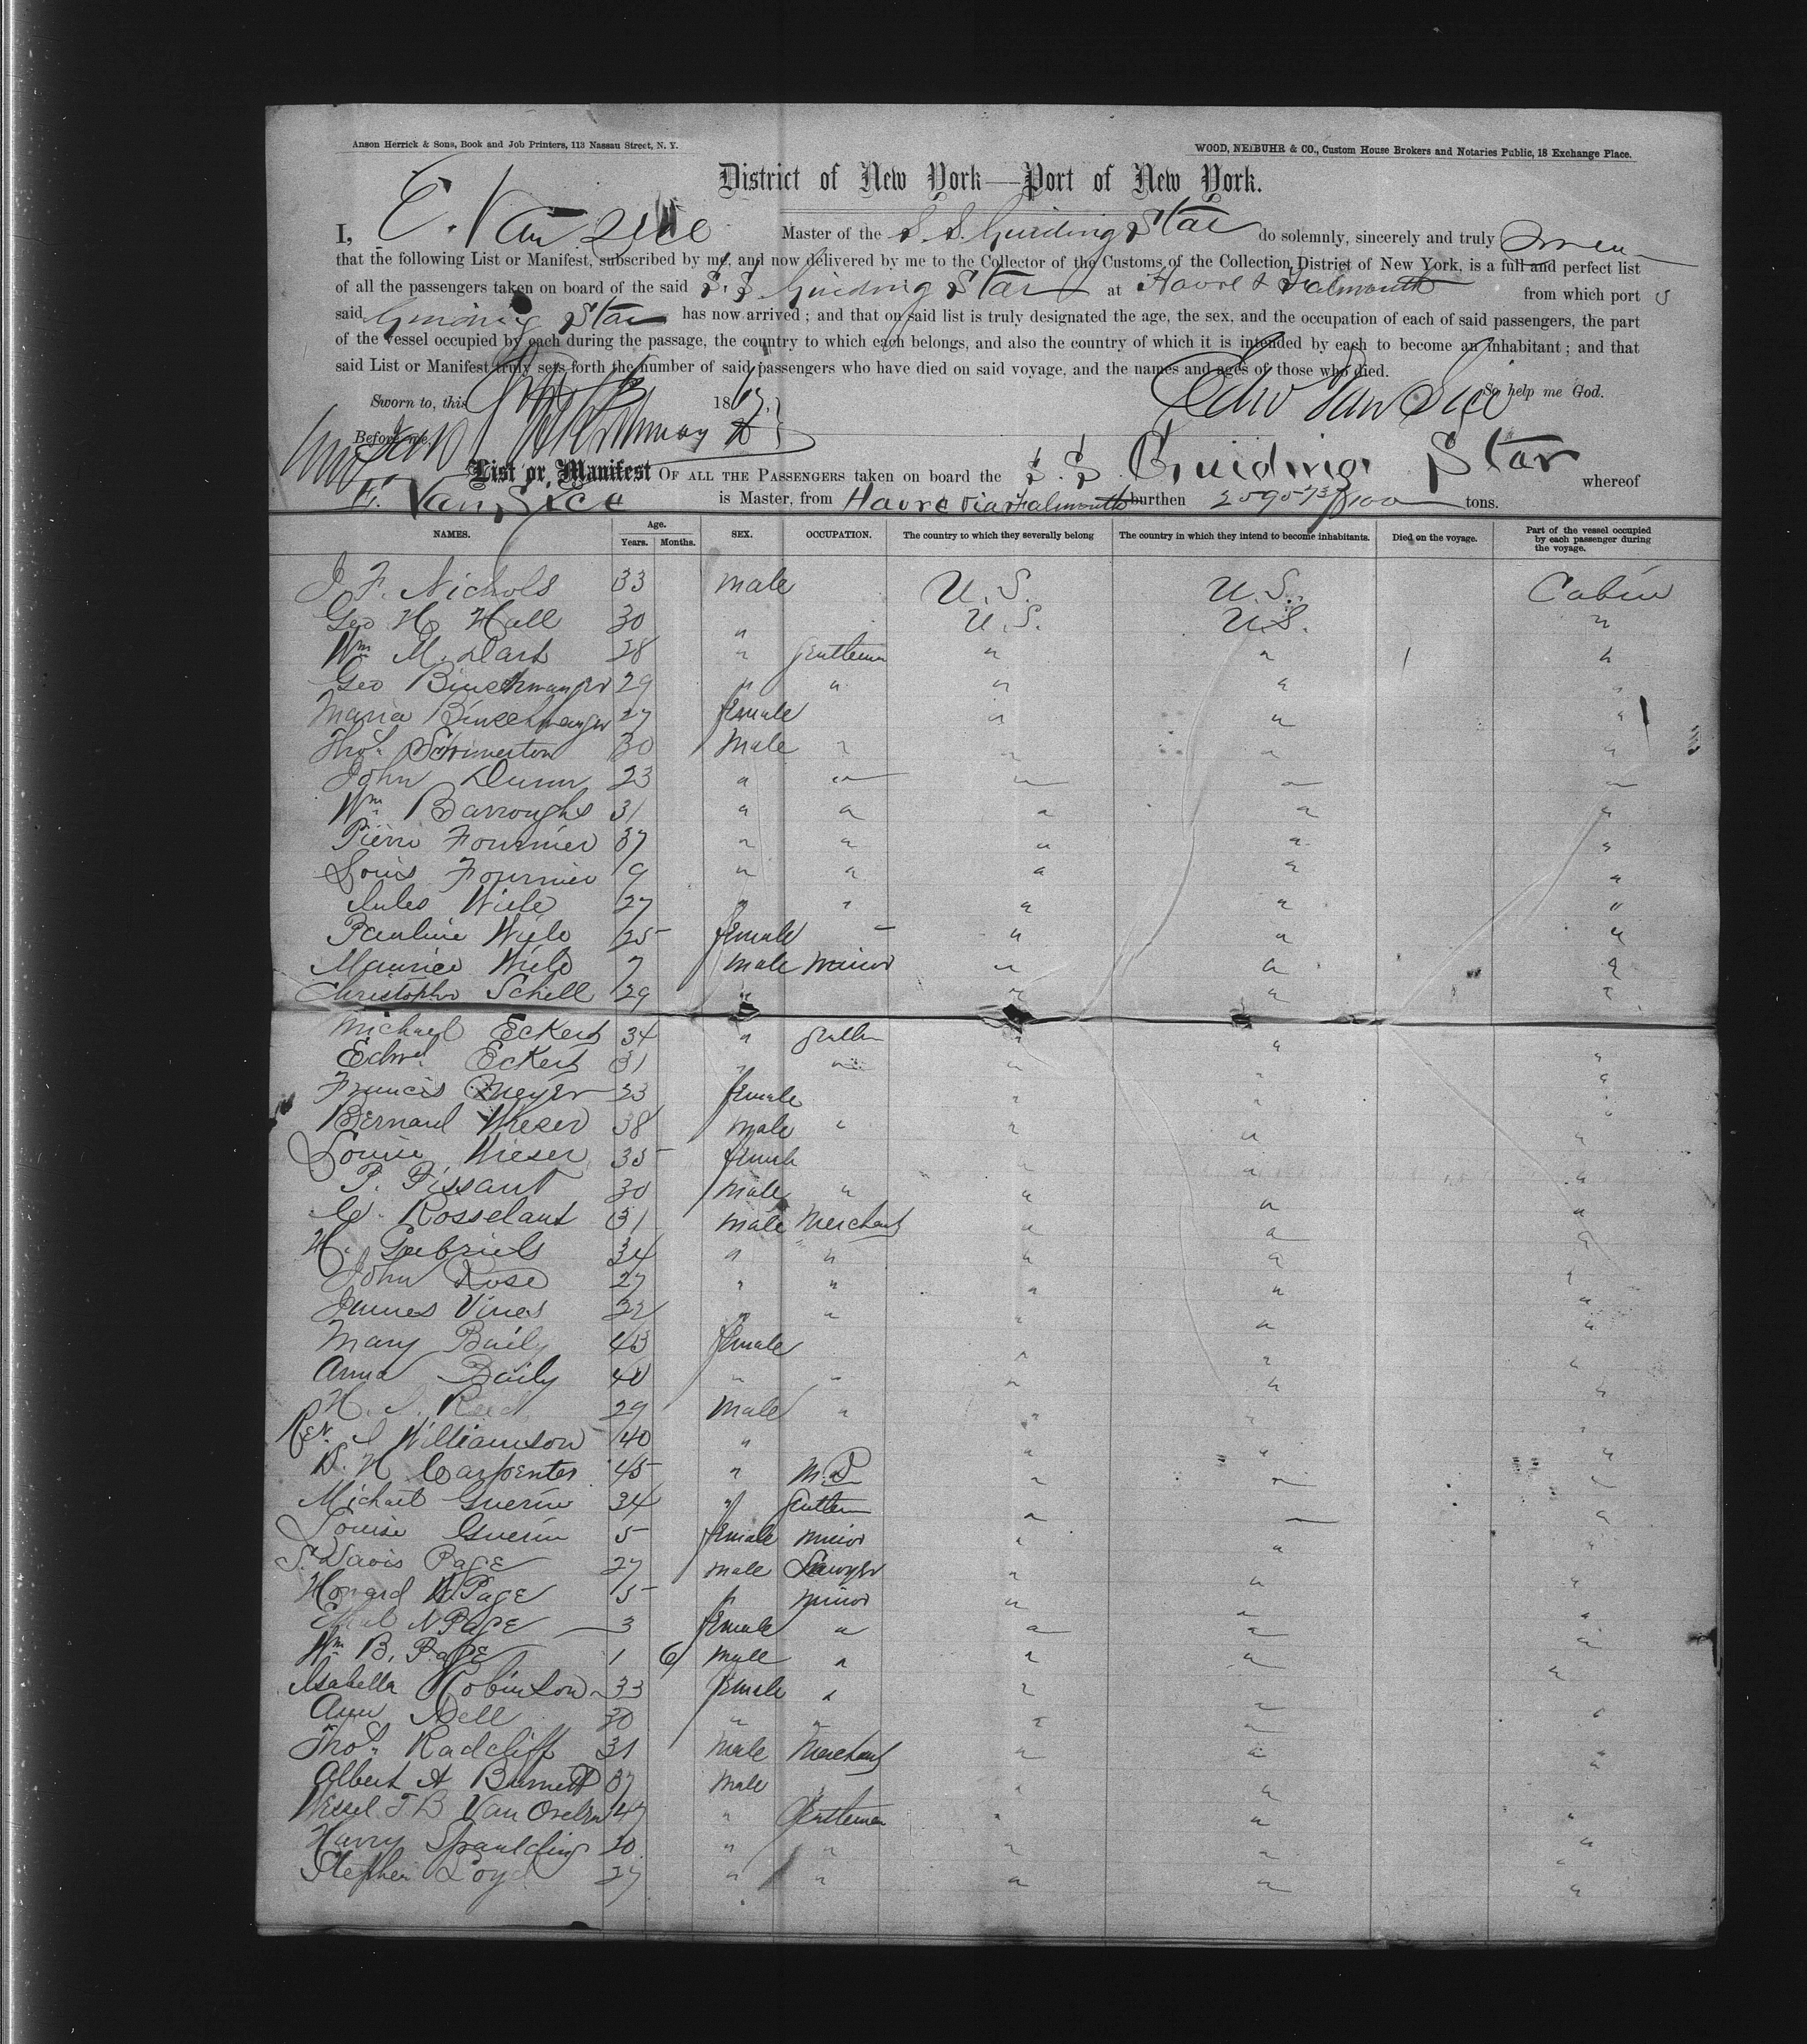 Anson Herrick & Sons, Book and Job Printers, 113 Nassau Street, N. Y.
WOOD, NEIBUHR & CO., Custom House Brokers and Notaries Public, 18 Exchange Place.
District of New York—Port of New York.
I, E. Van Sice Master of the S. S. Guiding Star do solemnly, sincerely and truly swear
that the following List or Manifest, subscribed by me, and now delivered by me to the Collector of the Customs of the Collection District of New York, is a full and perfect list
of all the passengers taken on board of the said S. S Guiding Star at Havre & Falmouth from which port s
said Guiding Star has now arrived; and that on said list is truly designated the age, the sex, and the occupation of each of said passengers, the part
of the vessel occupied by each during the passage, the country to which each belongs, and also the country of which it is intended by each to become an inhabitant; and that
said List or Manifest truly sets forth the number of said passengers who have died on said voyage, and the names and ages of those who died.
So help me God.
Sworn to, this 1867. Edw Van Sice
Before me,
List or Manifest OF ALL THE PASSENGERS taken on board the S. S Guiding Star whereof
E. Van Sice is Master, from Havre via Falmouth burthen tons.
NAMES. Age. Years. Months. SEX. OCCUPATION. The country to which they severally belong The country in which they intend to become inhabitants. Died on the voyage. Part of the vessel occupied by each passenger during the voyage.
J F. Nichols 33 male U. S. U. S. Cabin
Geo H Hall 30 " U. S. U. S. "
Wm M. Dart 28 " Gentleman " " "
Geo 29 " " " " "
Maria 27 female " " "
Thos 30 Male " " " "
John Dunn 23 " " " " "
Wm Barroughs 31 " " " " "
Pierre Fournier 37 " " " " "
Louis Fournier 9 " " " " "
Jules Wiele 27 " " " " "
Pauline Wiele 25 female " " "
Maurice Wiele 7 male minor " " "
Christopher Schell 29 " " " "
Michael Eckert 34 " " " "
Edwd Eckert 31 " " " " "
Francis Meyer 23 female " " "
Bernard Wieser 38 male " " " "
Louise Wieser 35 female " " "
P. Pissant 30 Male " " " "
C. Rosselant 31 male Merchant " " "
H. Gabriels 34 " " " " "
John Rose 27 " " " " "
James Vines 32 " " " " "
Mary Baily 43 female " " "
Anna Baily 40 " " " " "
H. Reed 29 Male " " " "
Rev. J Williamson 40 " " " "
D. H Carpenter 45 " M.D " " "
Michael Guerin 34 " Gentlem " " "
Louise Guerin 5 female minor " " "
S. Davis Page 27 male Lawyer " " "
Howard W. Page 5 " minor " " "
Ethel N Page 3 female " " " "
Wm B. Page 1 6 Male " " " "
Isabella Robinson 33 female " " " "
Ann Dell 30 " " " " "
Thos Radcliff 31 Male Merchant " " "
Albert A Burnett 37 Male " " "
Wessel T. B Van 47 " Gentleman " " "
Harry Spaulding 30 " " " " "
Stephen Loyd 27 " " " " "